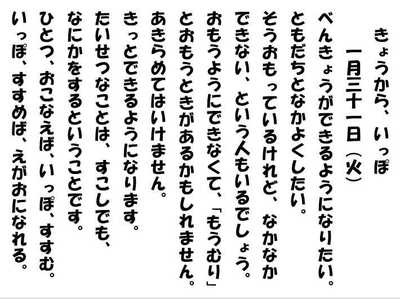 きょうから、いっぽ
一月三十一日（火）
べんきょうができるようになりたい。
ともだちとなかよくしたい。
そうおもっているけれど、なかなか
できない、という人もいるでしょう。
おもうようにできなくて、「もうむり」
とおもうときがあるかもしれません。
あきらめてはいけません。
きっとできるようになります。
たいせつなことは、すこしでも、
なにかをするということです。
ひとつ、おこなえば、いっぽ、すすむ。
いっぽ、すすめば、えがおになれる。